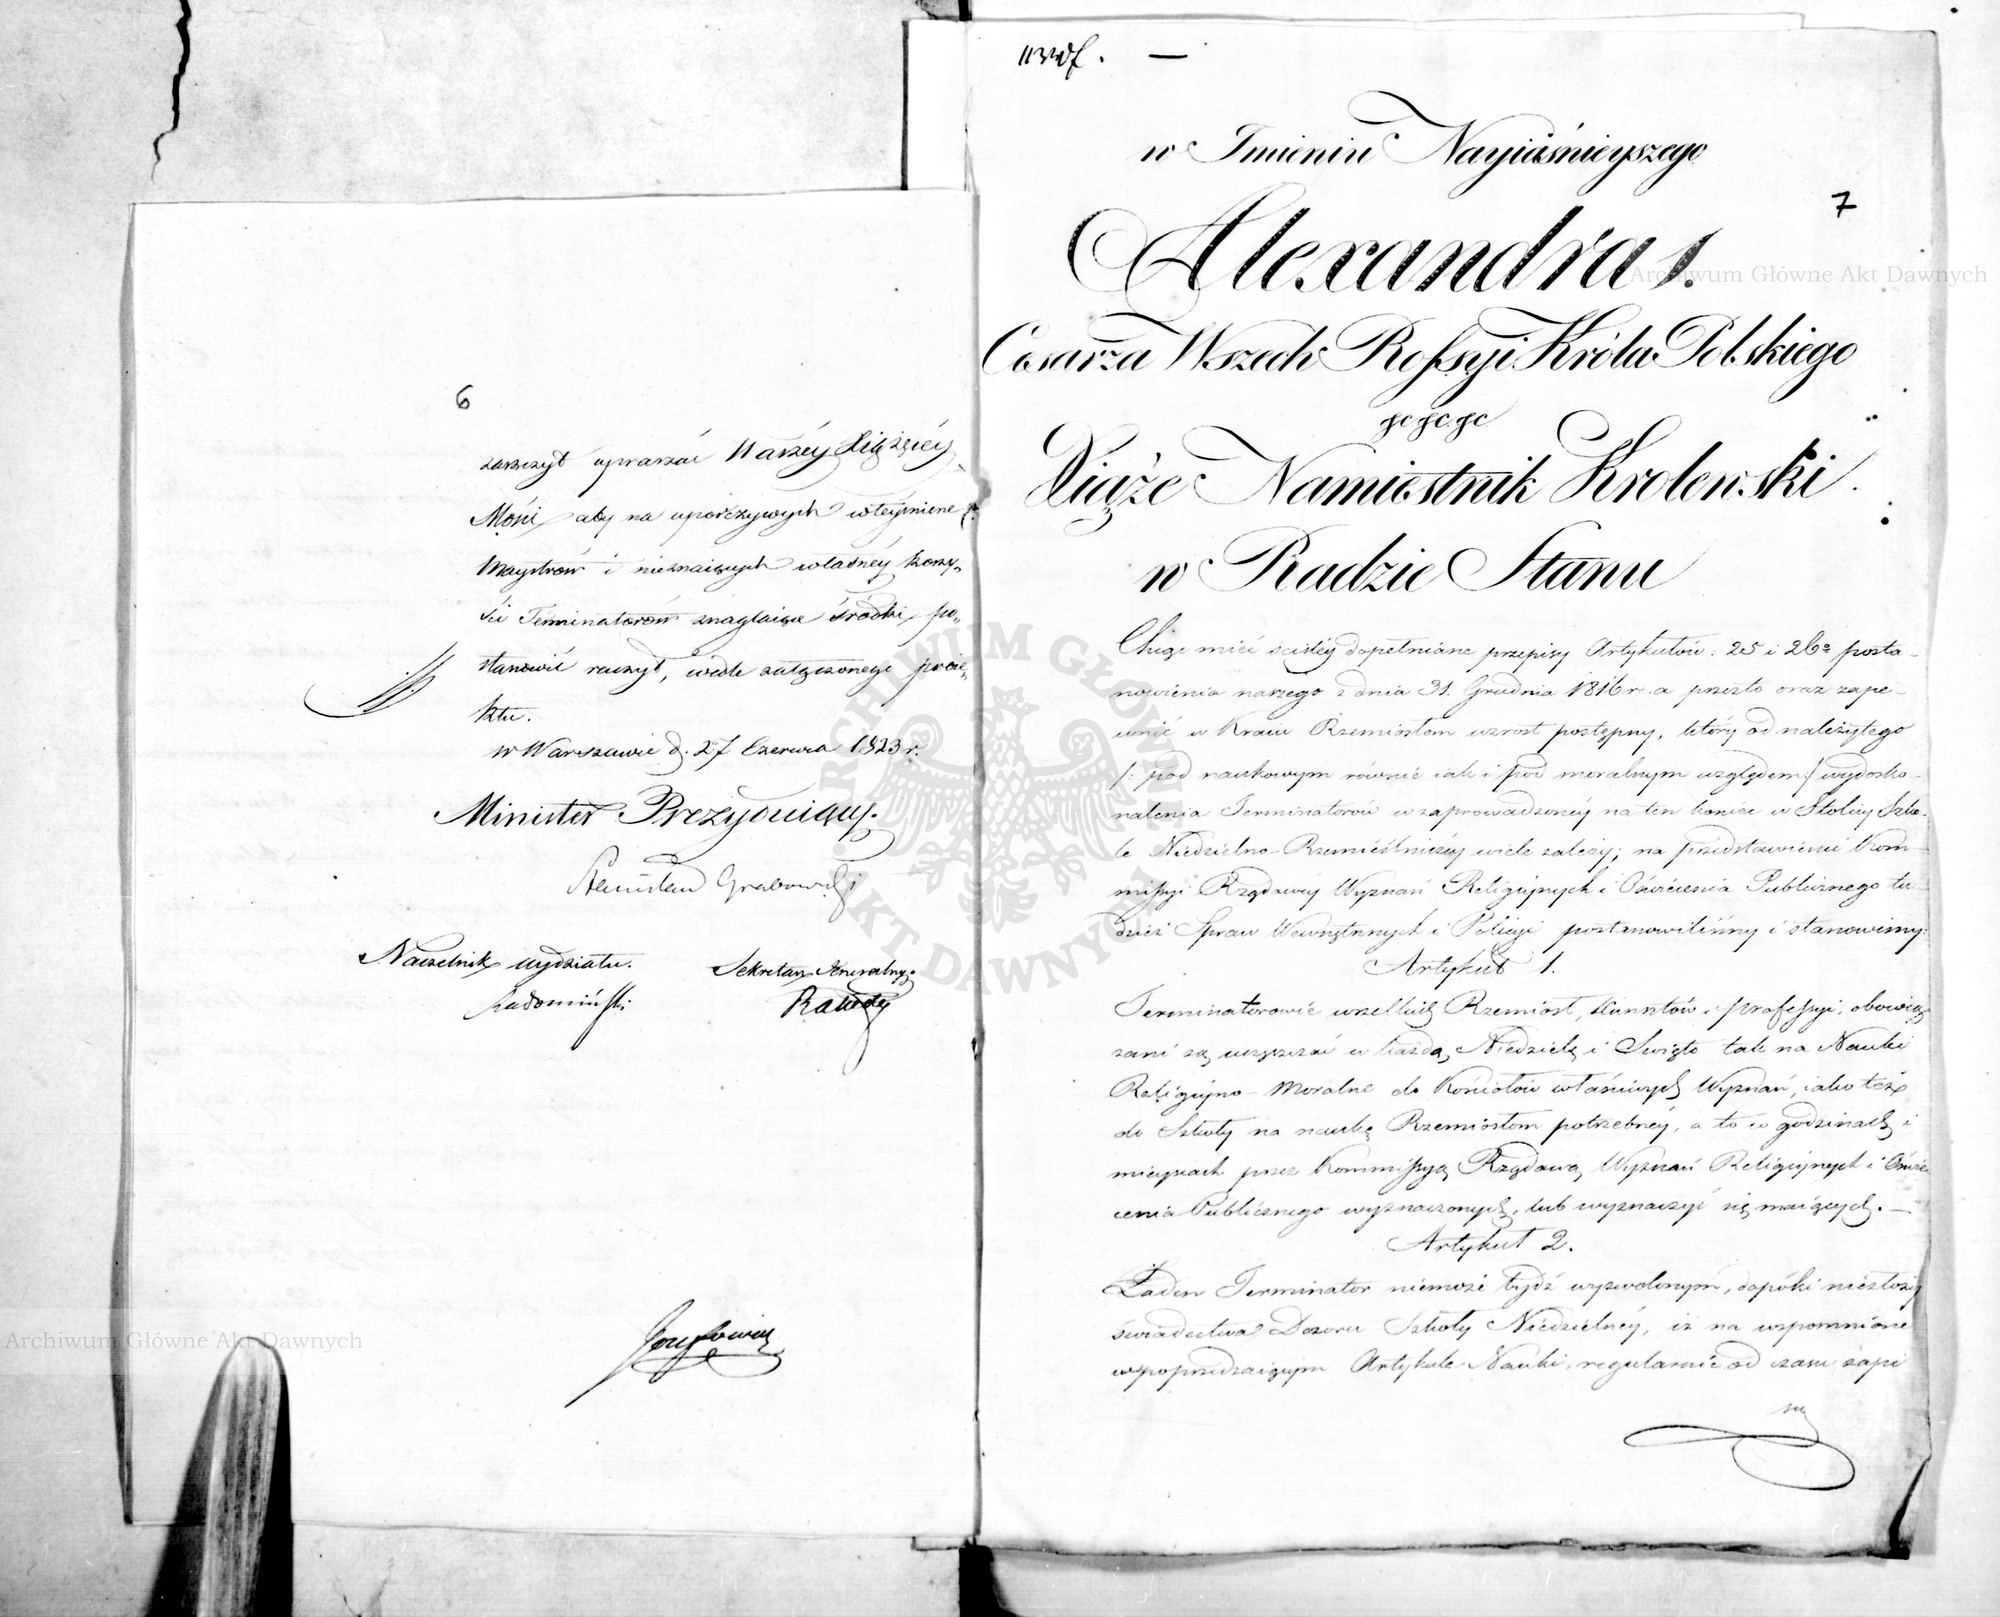 6
zaszczyt upraszać Waszey Xiążęcey
Mości aby na uporczywych wteymierze
Maystrów i nieznaiących własney korzy„
ści Terminatorów znaglaiące środki po„
stanowić raczył, wedle załączonego proie„
ktu.
w Warszawie d. 27 Czerwca 1823 r.
Minister Prezyduiący.
Stanisław Grabowski
Naczelnik wydziału. Sekretarz Jeneralny.
Radomiński
7
w Imieniu Nayiaśnieyszego
Alexandra 1.
Cesarza Wszech Rossyi Króla Polskiego
&c &c &c
Xiąże Namiestnik Krolewski
w Radzie Stanu
Chcąc mieć ściśley dopełniane przepisy Artykułów: 25 i 26o posta-
nowienia naszego z dnia 31. Grudnia 1816 r. a przeto oraz zape-
wnić w Kraiu Rzemiosłom wzrost postępny, który od należytego
/: pod naukowym równie iak i pod moralnym względem :/ wydosko-
nalenia Terminatorów w zaprowadzoney na ten koniec w Stolicy Szko-
le Niedzielno-Rzemieślniczey wiele zależy; na przedstawienie Kom-
missyi Rządowey Wyznań Religiynych i Oświecenia Publicznego tu-
dzież Spraw Wewnętrznych i Policyi postanowiliśmy i stanowimy:
Artykuł 1.
Terminatorowie wszelkich Rzemiosł, kunsztów i professyi, obowią
zani są uczęszczać w każdą Niedzielę i Święto tak na Nauki
Religiyno-Moralne do Kościołów właściwych Wyznań, iako też
do Szkoły na naukę Rzemiosłom potrzebney, a to w godzinach i
mieyscach przez Kommissyą Rządową Wyznań Religiynych i Oświe
cenia Publicznego wyznaczonych, lub wyznaczyć się maiących. —
Artykuł 2.
Żaden Terminator niemoże bydź wyzwolonym, dopóki niezłoży
świadectwa Dozoru Szkoły Niedzielney, iż na wspomnione
wpoprzedzaiącym Artykule Nauki, regularnie od czasu zapi
Archiwum Główne Akt Dawnych
Archiwum Główne Akt Dawnych
ARCHIWUM GŁÓWNE AKT DAWNYCH